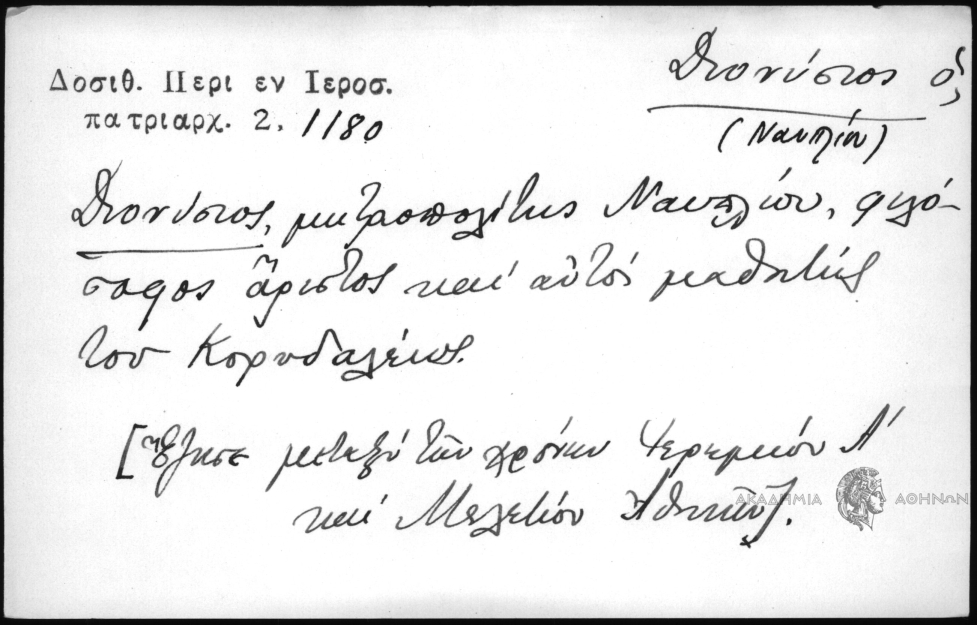 Δοσιθ. Περι εν Ιεροσ.
πατριαρχ. 2, 1180
Διονύσιος ὁ,
(Ναυπλίου)
Διονύσιος, μητροπολίτης Ναυπλίου, φιλό-
σοφος ἄριστος καί αὐτός μαθητής
του Κορυδαλέως.
[Ἔζησε μεταξύ τῶν χρόνων Ἱερεμίου Α'
καί Μελετίου Ἀθηνῶν].
ΑΚΑΔΗΜΙΑ ΑΘΗΝΩΝ